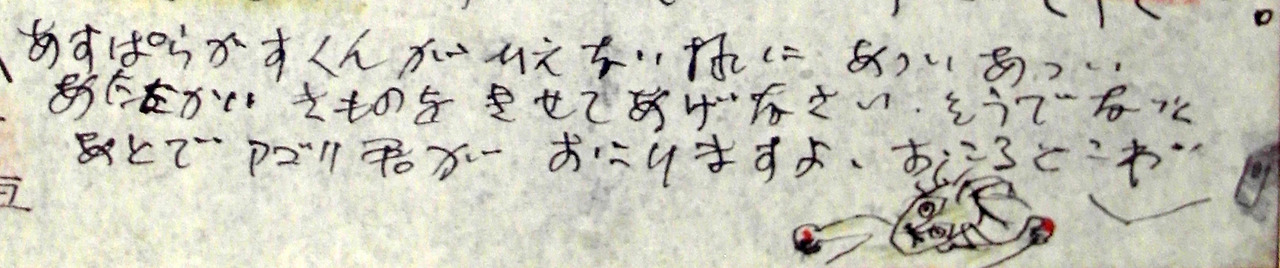 あすぱらがすくんがひえないようにあついあつい
あたたかいきものをきせてあげなさい。そうでないと
あとでアゴリ君がおこりますよ、おこるとこわ